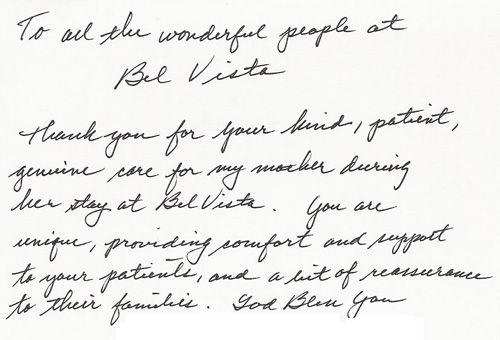 To all the wonderful people at
Bel Vista
Thank you for your kind, patient,
genuine care for my mother during
her stay at Bel Vista. You are
unique, providing comfort and support
to your patients, and a bit of reassurance
to their families. God Bless You